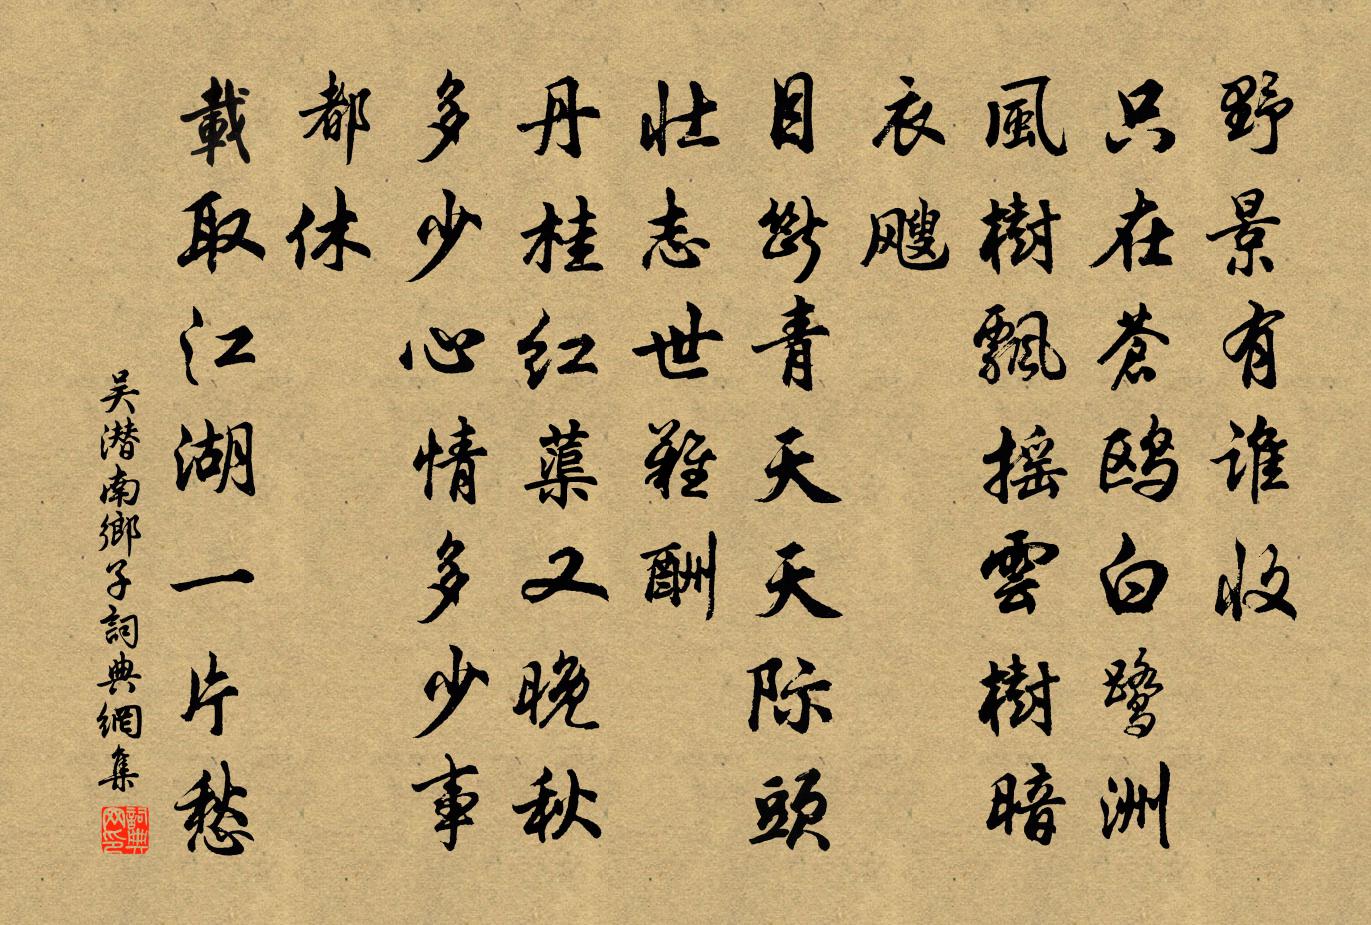 野景有谁收
只在蒼鸥白鹭洲
風樹飄摇雲樹暗
衣飕
目斷青天天际頭
壮志世難酬
丹桂红蕖又晚秋
多少心情多少事
都休
載取江湖一片愁
吴潜南鄉子詞典網集
詞典
网印